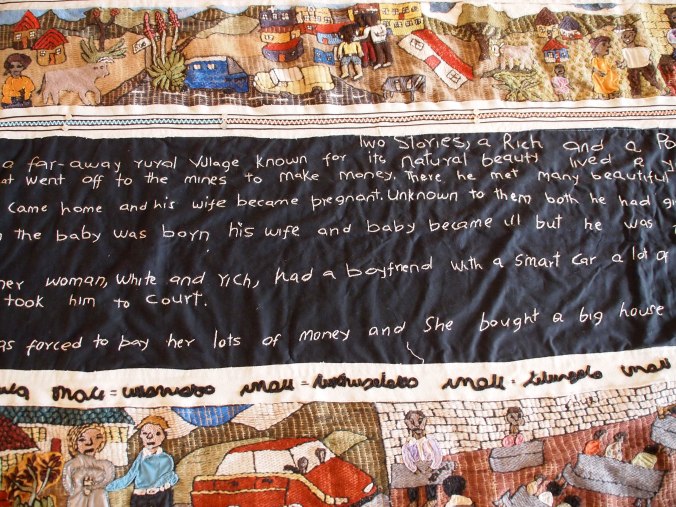 Two Stories, a Rich and a Po
a far-away rural Village known for its natural beauty lived a y
at went off to the mines to make money. There he met many beautiful
came home and his wife became pregnant. Unknown to them both he had gi
the baby was born his wife and baby became ill but he was
her woman, white and rich, had a boyfriend with a smart car a lot of
took him to court.
as forced to pay her lots of money and she bought a big house